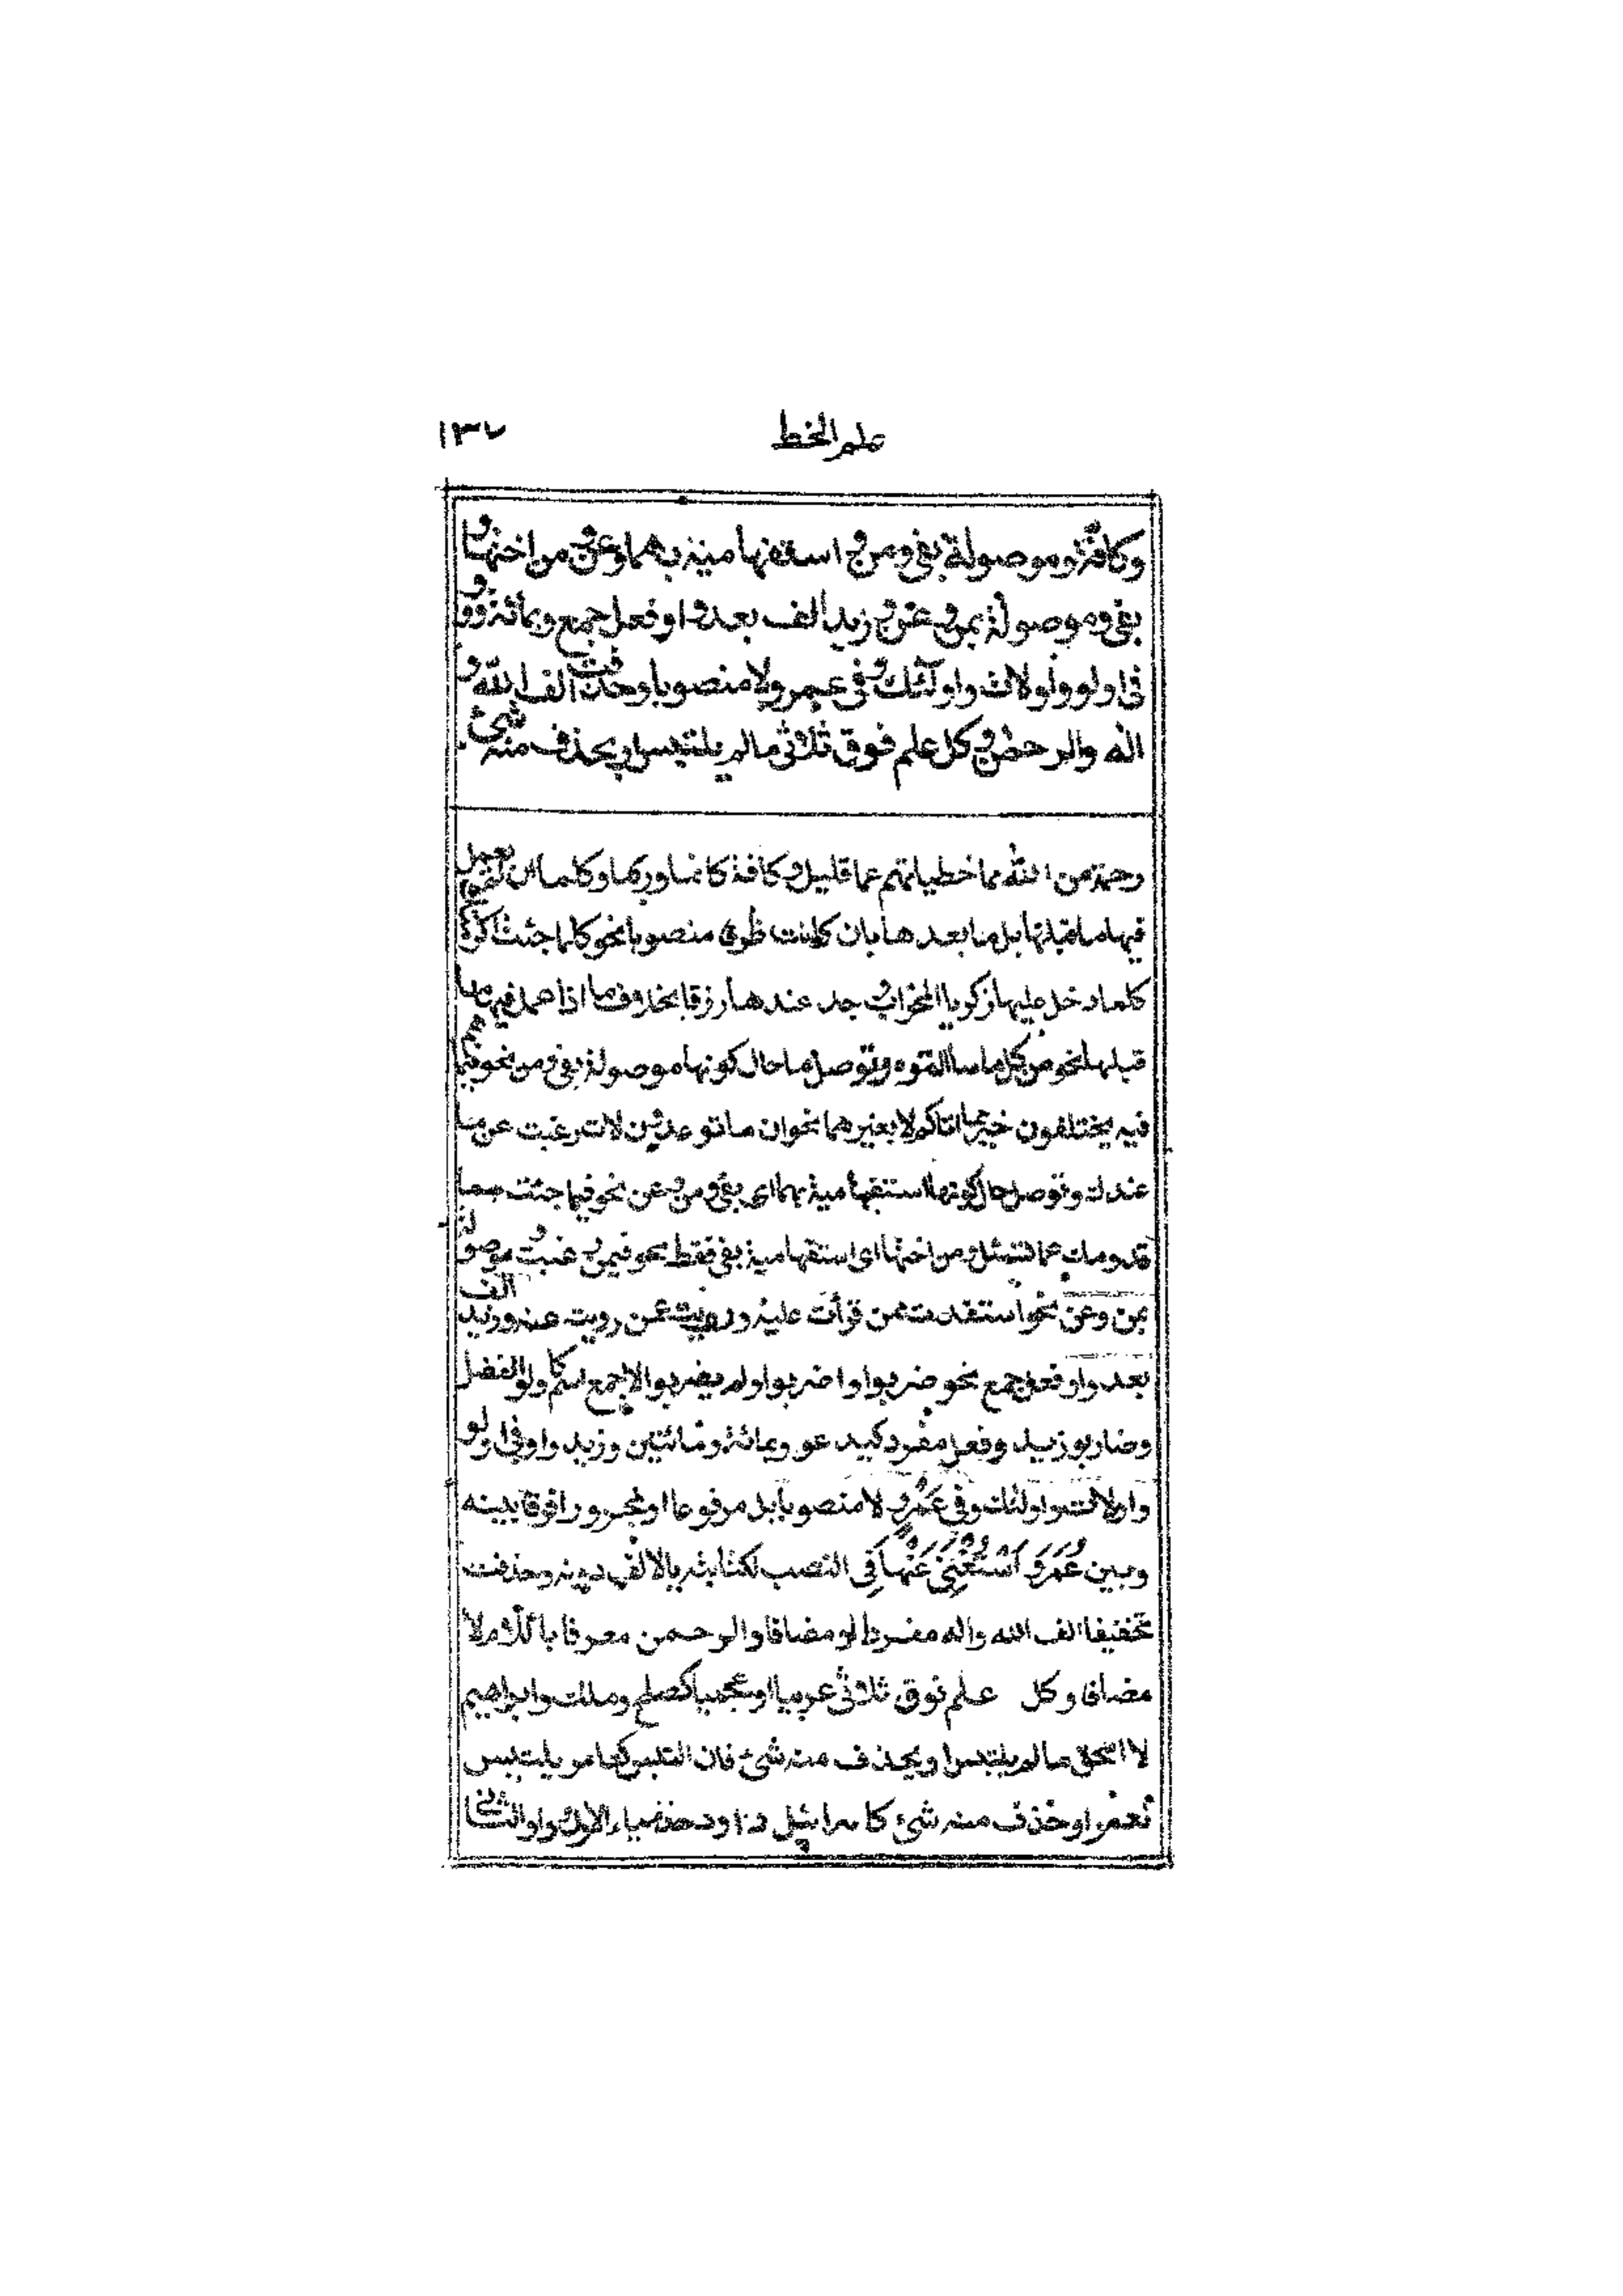 علم الخط ١٣٧
وكافة وموصولة بفى ومن واستفهامية بهما وعن ومن اختها و
بفى وموصولة بمن وعن وزيد الف بعد واو فعل جمع وبمائة وواو
فى اولو واولات واولئك وفى عمرو لا منصوبا وحذفت الف الله و
اله والرحمن وكل علم فوق ثلاثى ما لم يلتبس او يحذف منه شئ
رحمة من الله مما خطياتهم عما قليل وكافة كانما وربما وكلما ان لم يعمل
فيها ما قبلها بل ما بعدها بان كانت ظرفا منصوبا نحو كلما جئت اكرمتك
كلما دخل عليها زكريا المحراب وجد عندها رزقا بخلاف ما اذا عمل فيها ما
قبلها نحو من كل ما سالتموه وتوصل ما حال كونها موصولة بفى ومن نحو فيما هم
فيه يختلفون خير مما اتاكم لا بغيرهما نحو ان ما توعدون لات رغبت عن ما
عندك وتوصل حال كونها استفهامية بهما اى بفى ومن وعن نحو فيما جئت مما
قدومك عما تسئل ومن اختها اى استفهامية بفى فقط نحو فيمن رغبت وموصولة
بمن وعن نحو استفدت ممن قرأت عليه ورويت عمن رويت عنه وزيد الف
بعد واو فعل جمع نحو ضربوا واضربوا ولم يضربوا لا جمع اسم كاولو الفضل
وضاربو زيد وفعل مفرد كيدعو وبمائة ومائتين وزيد واو فى اولو
واولات واولئك وفى عَمْرٍو لا منصوبا بل مرفوعا او مجرورا فرقا بينه
وبين عُمَرَ واستغنى عنها فى النصب لكتابته بالالف دونه وحذفت
تخفيفا الف الله واله مفردا او مضافا والرحمن معرفا باللام لا
مضافا وكل علم فوق ثلاثى عربيا او عجميا كصلح وملك وابرهيم
لا اسحق ما لم يلتبس او يحذف منه شئ فان التبس كعامر يلتبس
بعمر او حذف منه شئ كاسرائيل وداود حذف ياء الاول وواو الثانى